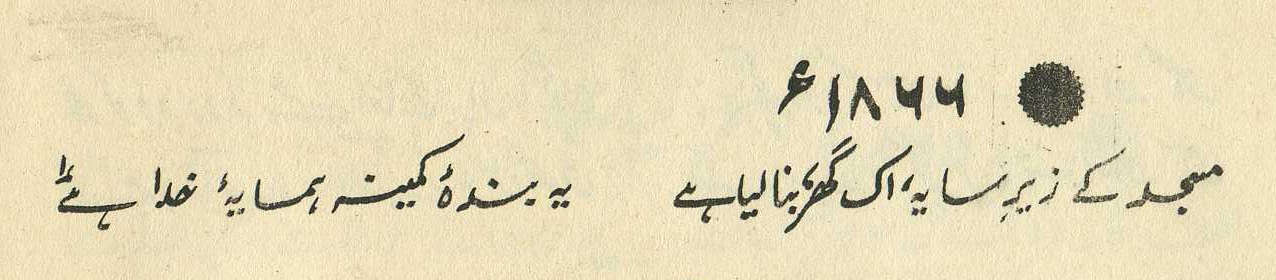 ۱۸۶۶ء
مسجد کے زیرِ سایہ، اک گھر، بنا لیا ہے یہ بندۂ کمینہ ہمسایۂ خدا ہے۱